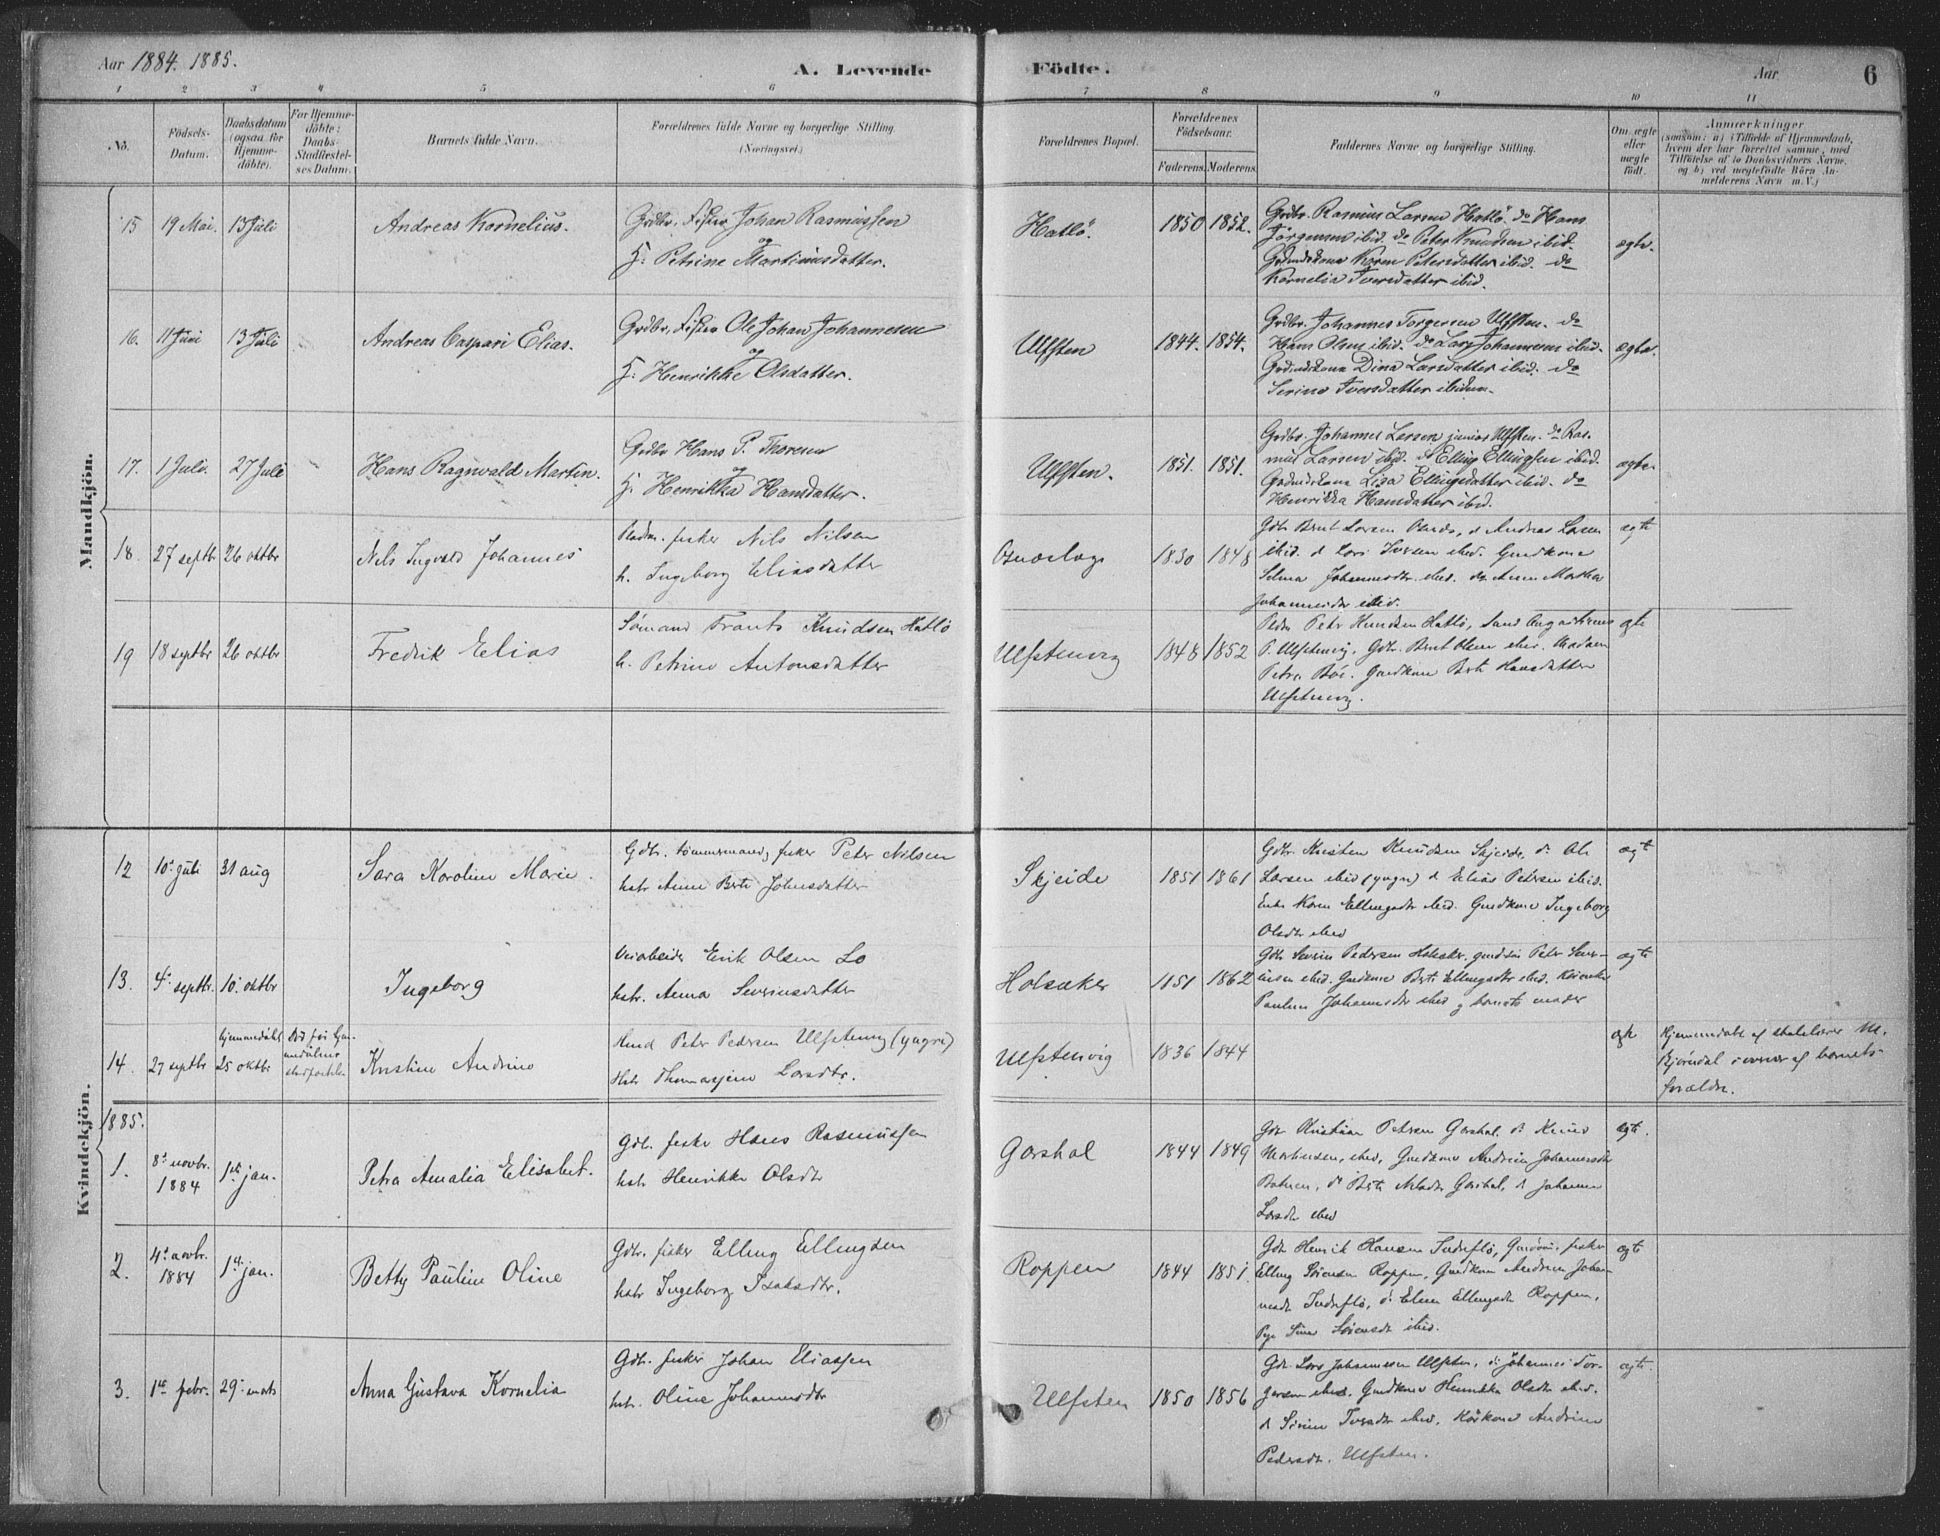 Aar 1884. 1885.
A. Levende Födte.
Aar
6
1 2 3 4 5 6 7 8 9 10 11
No.
Födsels-Datum.
Daabsdatum (ogsaa for Hjemmedöbte).
For Hjemmedöbte: Daabs-Stadfæstelses Datum.
Barnets fulde Navn.
Forældrenes fulde Navne og borgerlige Stilling. (Næringsvei.)
Forældrenes Bopæl.
Forældrenes Födselsaar.
Faderens. Moderens.
Faddernes Navne og borgerlige Stilling.
Om ægte eller uægte födt.
Anmærkninger
(saasom: a) i Tilfælde af Hjemmedaab, hvem der har forrettet samme, med Tilföielse af to Daabsvidners Navne, og b) ved uægtefödte Börn Anmelderens Navn m. V.)
Mandkjön.
15 19 Mai. 13 Juli Andreas Kornelius.
Grdbr. Fisker Johan Rasmussen
og
H: Petrine Martinusdatter.
Hatlö. 1850 1852.
Grdbr. Rasmus Larsen Hatlö. do Hans
Jörgensen ibid. do Peter Knudsen ibid.
Grdmdskone Karen Petersdatter ibid. do
Kornelia Iversdatter ibid.
ægte.
16. 11 Juni 13 Juli Andreas Caspari Elias.
Grdbr. Fisker Ole Johan Johannesen
og
H: Henrikke Olsdatter.
Ulfsten 1844. 1854.
Grdbr. Johannes Torgersen Ulfsten. do
Hans Olsen ibid. do Lars Johannesen ibid.
Grdmdskone Dina Larsdatter ibid. do
Serine Iversdatter ibidem.
ægte.
17. 1 Juli. 27 Juli Hans Ragnvald Martin.
Grdbr Hans P. Thoresen
og
H: Henrikka Hansdatter.
Ulfsten. 1851. 1851.
Grdbr. Johannes Larsen junior Ulfsten. do Ras-
mus Larsen ibid. do Elling Ellingsen ibid.
Grdmdskone Lisa Ellingsdatter ibid. do
Henrikka Hansdatter ibid.
ægte.
18. 27 septbr 26 oktbr Nils Ingvald Johannes
fisker Nils Nilsen
h. Ingeborg Eliasdatter
1830 1848
Gdbr Bernt Larsen d. Andreas Larsen
ibid. d Lars Iversen ibid. Gmdkone
Selma Johannesdtr ibid. do Anne Martha
Johannesdtr ibid.
ægte
19 18 septbr 26 oktbr Fredrik Elias
Sömand Frants Knudsen Hatlö
h. Petrine Antonsdatter
Ulfstenvig 1848 1852
Peter Knudsen Hatlö,
P. Ulfstenvig, Gdbr. Bernt Olsen ibid. Madam
Petra Böe. Gmdkone Berte Hansdatter
Ulfstenvig.
ægte
Kvindekjön.
12 10. juli 31 aug Sara Karoline Marie.
Gdbr. tömmermand, fisker Peter Nilsen
hstr Anne Berte Johnsdatter
Skjeide 1851 1861
Gdbr. Kristen Knudsen Skjeide, do Ole
Larsen ibid (yngre) d Elias Petersen ibid.
Enke Karen Ellingsdtr ibid. Gmdkone Ingeborg
Olsdtr ibid
ægte
13. 4. septbr. 10. oktbr Ingeborg
Veiarbeider Erik Olsen Lo
hstr. Anna Severinsdatter
Holsæker 1851 1862
Gdbr Severin Pedersen Holsæker, gmdsön Peter Sever-
insen ibid. Gmdkone Berte Ellingsdtr ibid.
Pauline Johannesdtr ibid og barnets moder
ægte
14. 27 septbr
hjemmedöbt
25 oktbr
Kristine Andrine
Peter Pedersen Ulfstenvig (yngre)
Hstr Thomasjene Larsdtr.
Ulfstenvig 1836 1844
ægte
Hjemmedöbt af skolelærer M.
Bjöndal i nærvær af barnets
forældre.
1885.
1. 8. novbr. 1884 1ste jan. Petra Amalia Elisabet.
Gdbr. fisker Hans Rasmussen
hstr Henrikke Olsdtr
Garshol 1844 1849
Gdbr Kristian Petersen Garshol, d. Knud
Martinsen, ibid, Gmdkone Andrine Johannesdtr
do Berte Nilsdtr Garshol, d Johanne
Larsdtr ibid
ægte.
2. 4. novbr. 1884 1ste jan. Betty Pauline Oline
Gdbr. fisker Elling Ellingsen
hstr Ingeborg Isaksdtr.
Roppen 1844 1851.
Gdbr Henrik Hansen Indreflö, fisker
Elling Sörensen Roppen, Gmdkone Andrine Johan-
nesdtr Indreflö, d. Elen Ellingsdtr Roppen,
Pige Sörensdtr ibid.
ægte
3. 1ste febr. 29. marts Anna Gustava Kornelia
Gdbr. fisker Johan Eliassen
hstr. Oline Johannesdtr
Ulfsten 1850 1856
Gdbr Lars Johannesen Ulfsten, d. Johannes Tor-
gersen ibid. Gmdkone Henrikke Olsdtr ibid.
d Sirine Iversdtr ibid. Andrine
Pedersdtr. Ulfsten.
ægte.